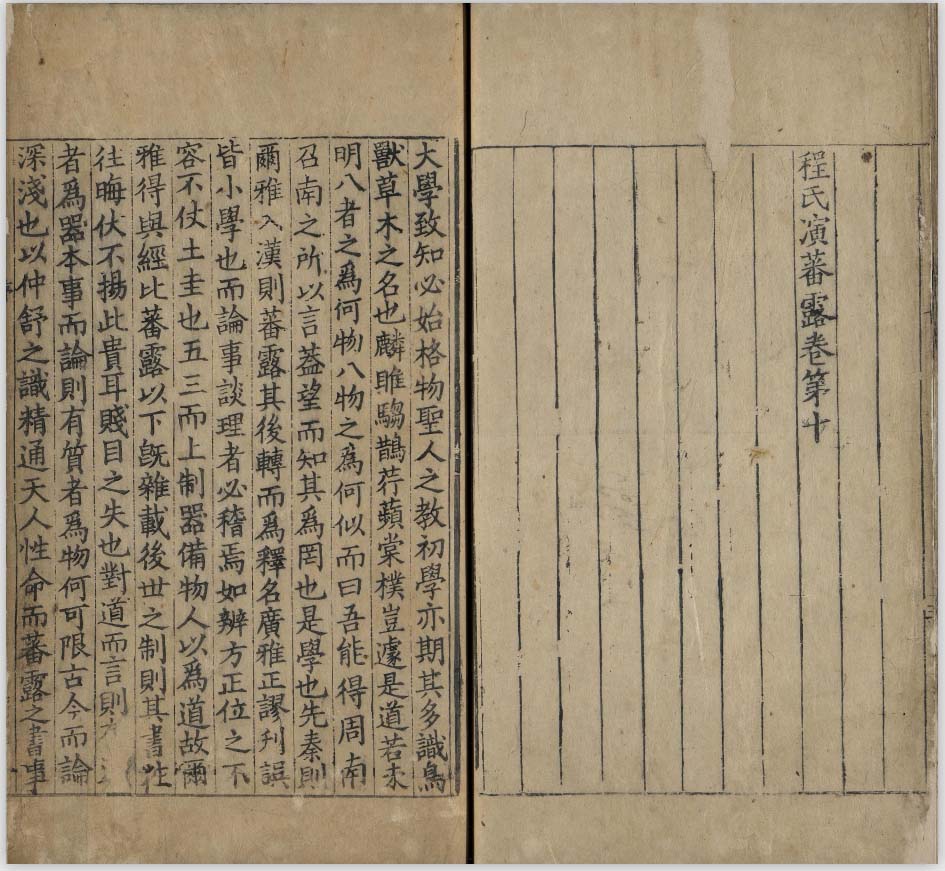 程氏演蕃露卷第十
大學致知必始格物聖人之教初學亦期其多識鳥
獸草木之名也麟雎騶鵲荇蘋棠樸豈遽是道若未
明八者之爲何物八物之爲何似而曰吾能得周南
召南之所以言葢望而知其爲罔也是學也先秦則
爾雅入漢則蕃露其後轉而爲釋名廣雅正謬刋誤
皆小學也而論事談理者必稽焉如辨方正位之不
容不仗土圭也五三而上制器備物人以爲道故爾
雅得與經比蕃露以下旣雜載後世之制則其書性
徃晦伏不揚此貴耳賤目之失也對道而言則
者爲器本事而論則有質者爲物何可限古今而論
深淺也以仲舒之識精通天人性命而蕃露之書事